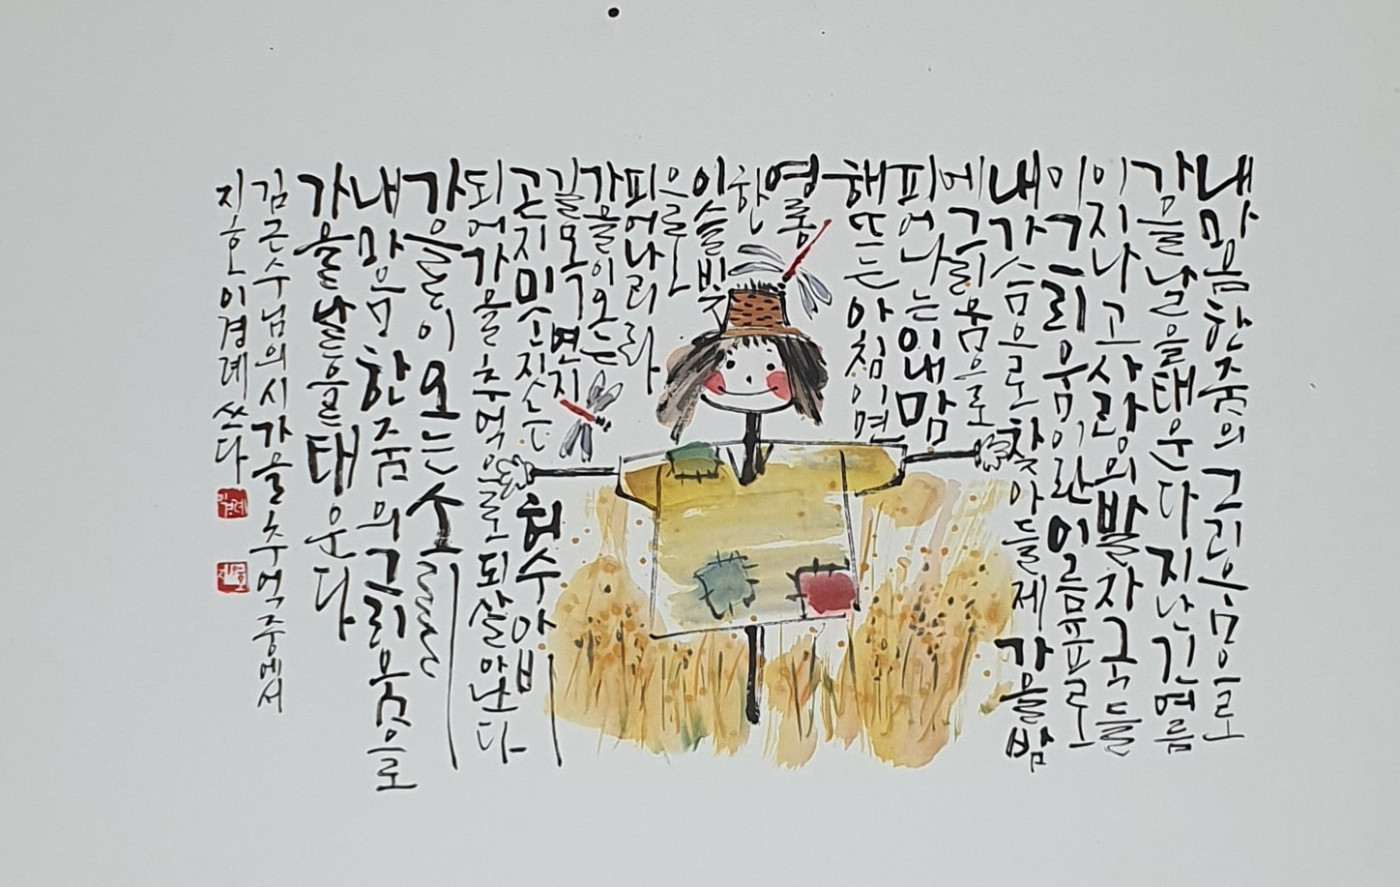 내 마음 한 줌의 그리움으로
가을날을 태운다 지난 여름
이 지나고 사랑의 발자국들
이 그리움이란 이름표로
내 가슴으로 찾아들제 가을밤
에 그리움으로
피어나는 이내 맘
해뜨는 아침이면
영롱
한
이슬빛
으로
피어나리라
가을이 오는
길목 연지
곤지 미소짓는 허수아비
되어 가을 추억으로 되살아난다
가을이 오는 소리를
내 마음 한 줌의 그리움으로
가을날을 태운다
김근수님의 시 가을추억 중에서
지호 이경례 쓰다